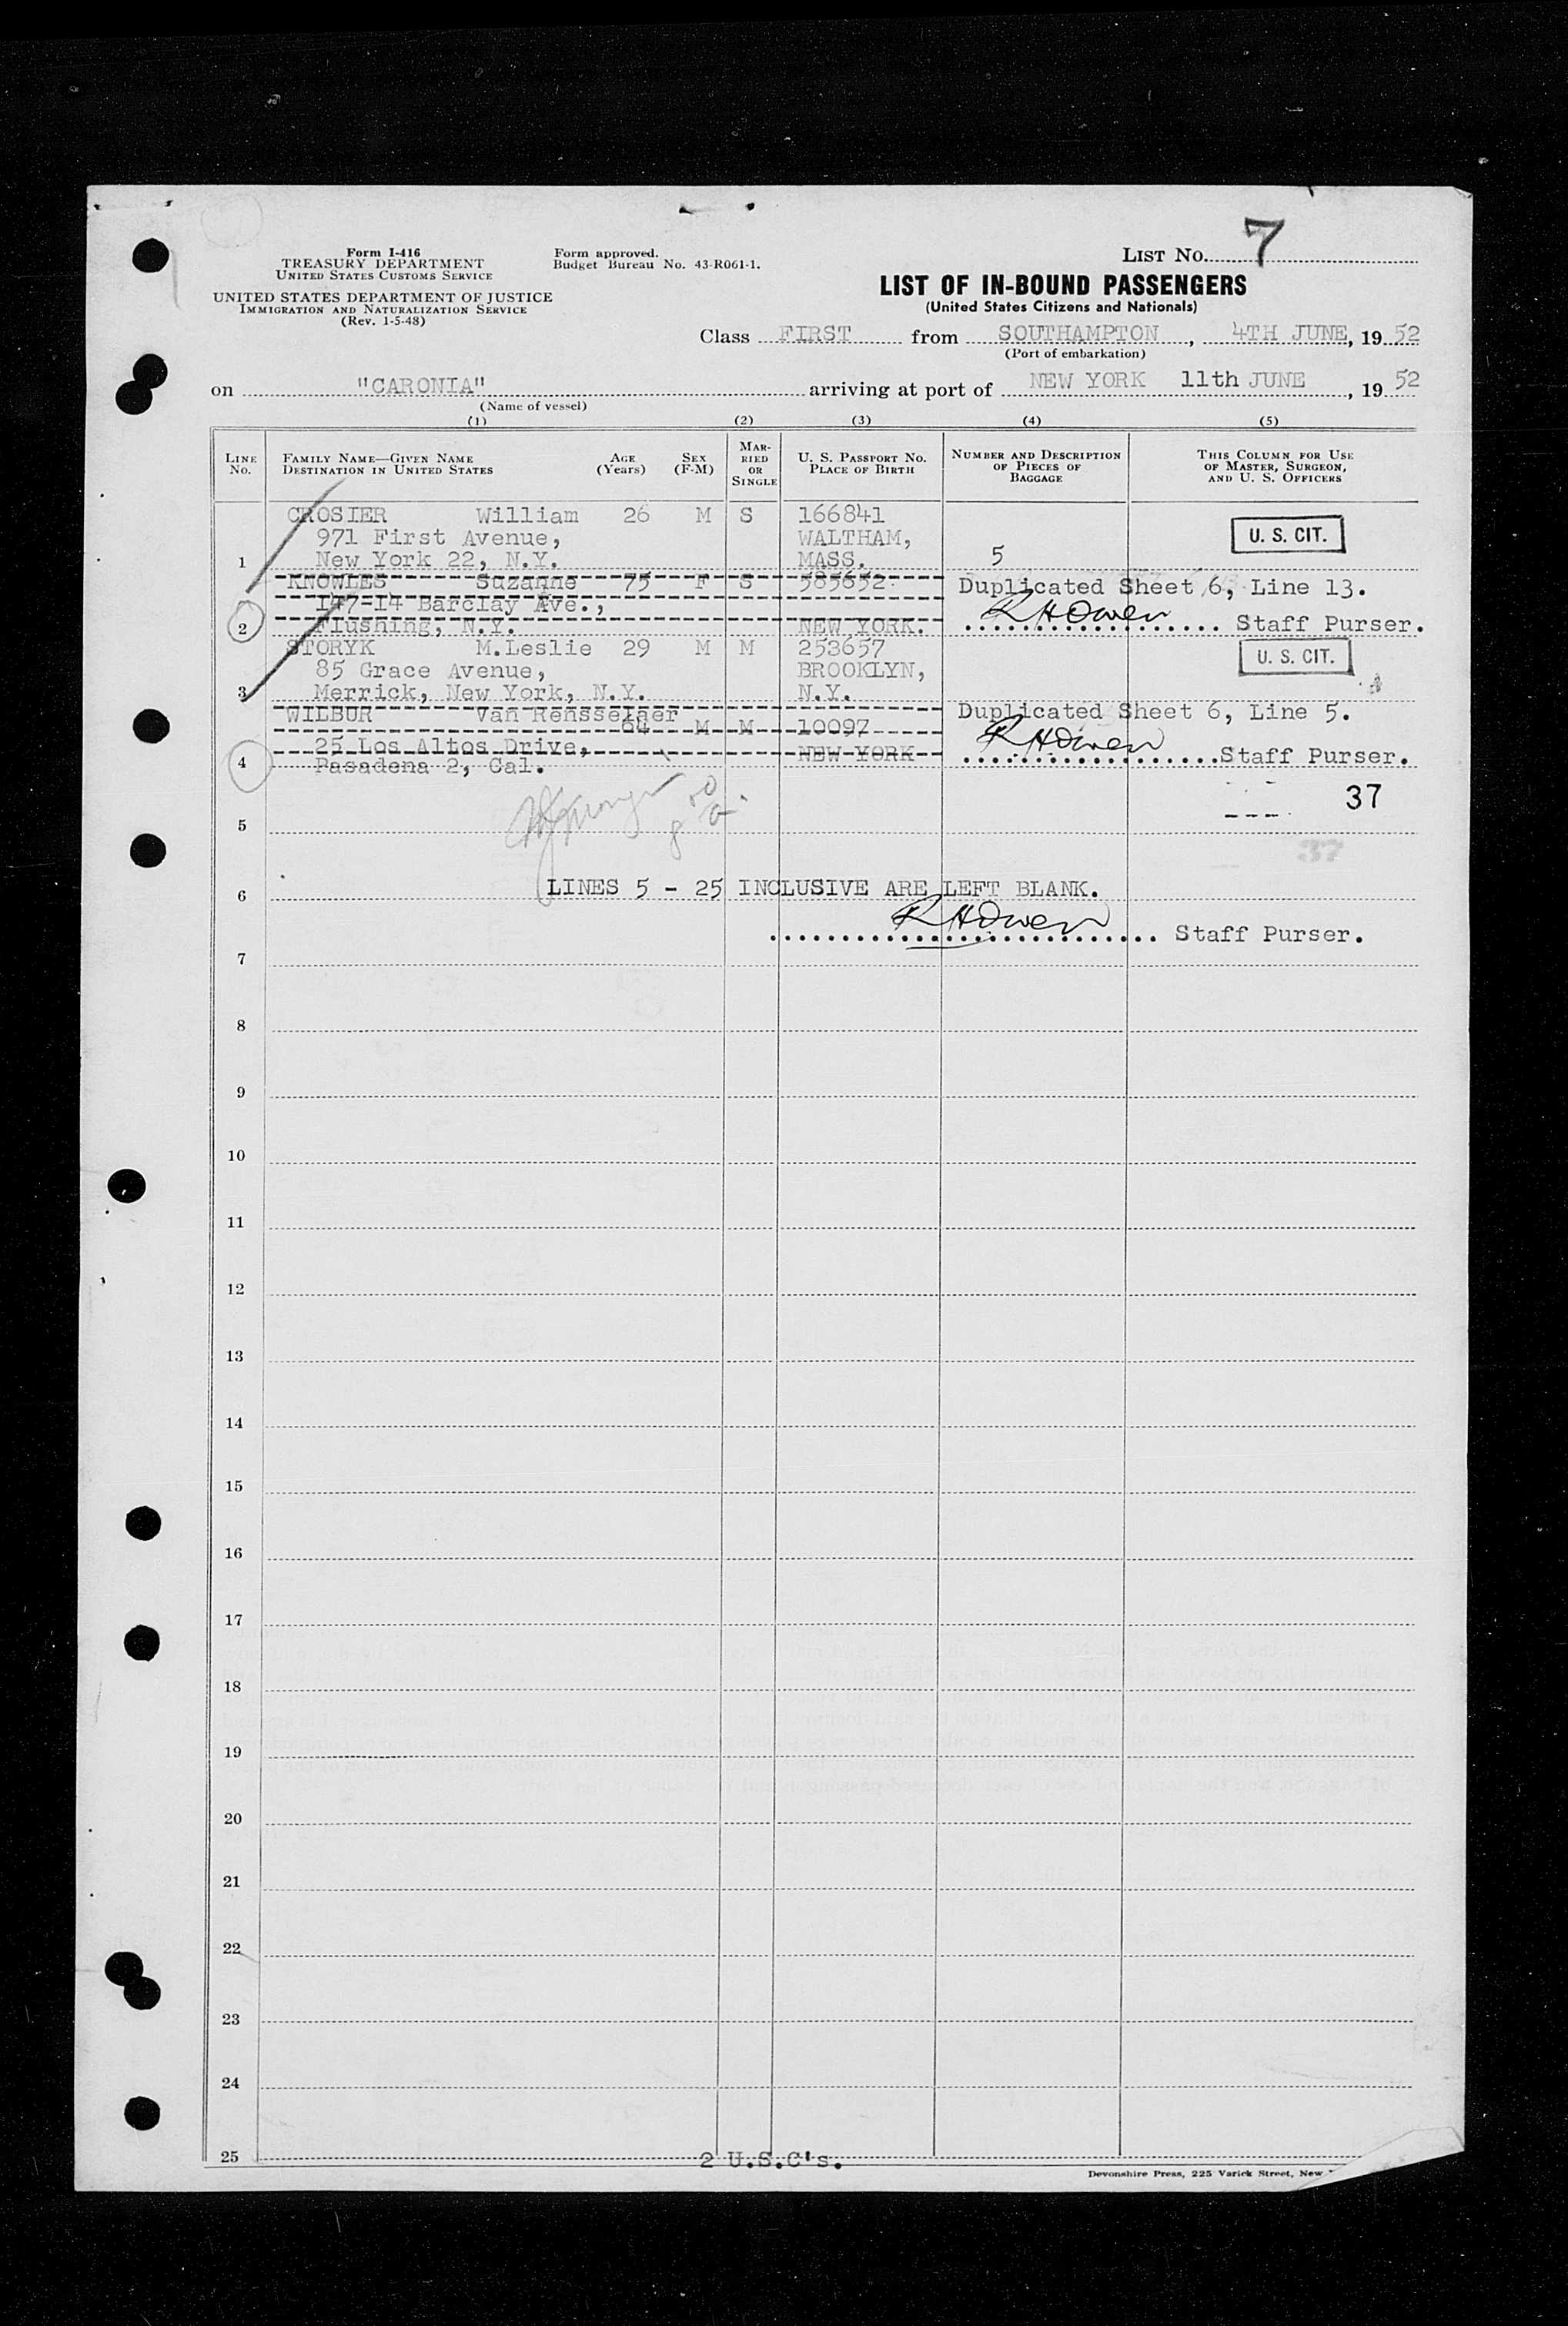 Form I-416
TREASURY DEPARTMENT
UNITED STATES CUSTOMS SERVICE
UNITED STATES DEPARTMENT OF JUSTICE
IMMIGRATION AND NATURALIZATION SERVICE
(Rev. 1-5-48)
Form approved.
Budget Bureau No. 43-R061-1.
LIST NO. 7
LIST OF IN-BOUND PASSENGERS
(United States Citizens and Nationals)
Class FIRST from SOUTHAMPTON, 4TH JUNE, 19 52
(Port of embarkation)
on "CARONIA" arriving at port of NEW YORK 11th JUNE, 19 52
(Name of vessel)
(1) (2) (3) (4) (5)
LINE No. FAMILY NAME—GIVEN NAME DESTINATION IN UNITED STATES AGE (Years) SEX (F-M) MARRIED OR SINGLE U. S. PASSPORT NO. PLACE OF BIRTH NUMBER AND DESCRIPTION OF PIECES OF BAGGAGE THIS COLUMN FOR USE OF MASTER, SURGEON, AND U. S. OFFICERS
CROSIER William 26 M S 166841
971 First Avenue, WALTHAM, U. S. CIT.
1 New York 22, N.Y. MASS. 5
KNOWLES Suzanne 75 F S 585652 Duplicated Sheet 6, Line 13.
147-14 Barclay Ave.,
2 Flushing, N.Y. NEW YORK. RHOwen Staff Purser.
STORYK M.Leslie 29 M M 253657 U. S. CIT.
85 Grace Avenue, BROOKLYN,
3 Merrick, New York, N.Y. N.Y.
WILBUR Van Rensselaer Duplicated Sheet 6, Line 5.
64 M M 10097
25 Los Altos Drive, NEW YORK RHOwen Staff Purser.
4 Pasadena 2, Cal.
37
5
37
6 LINES 5 - 25 INCLUSIVE ARE LEFT BLANK.
RHOwen Staff Purser.
7
8
9
10
11
12
13
14
15
16
17
18
19
20
21
22
23
24
25 2 U.S.C's.
Devonshire Press, 225 Varick Street, New